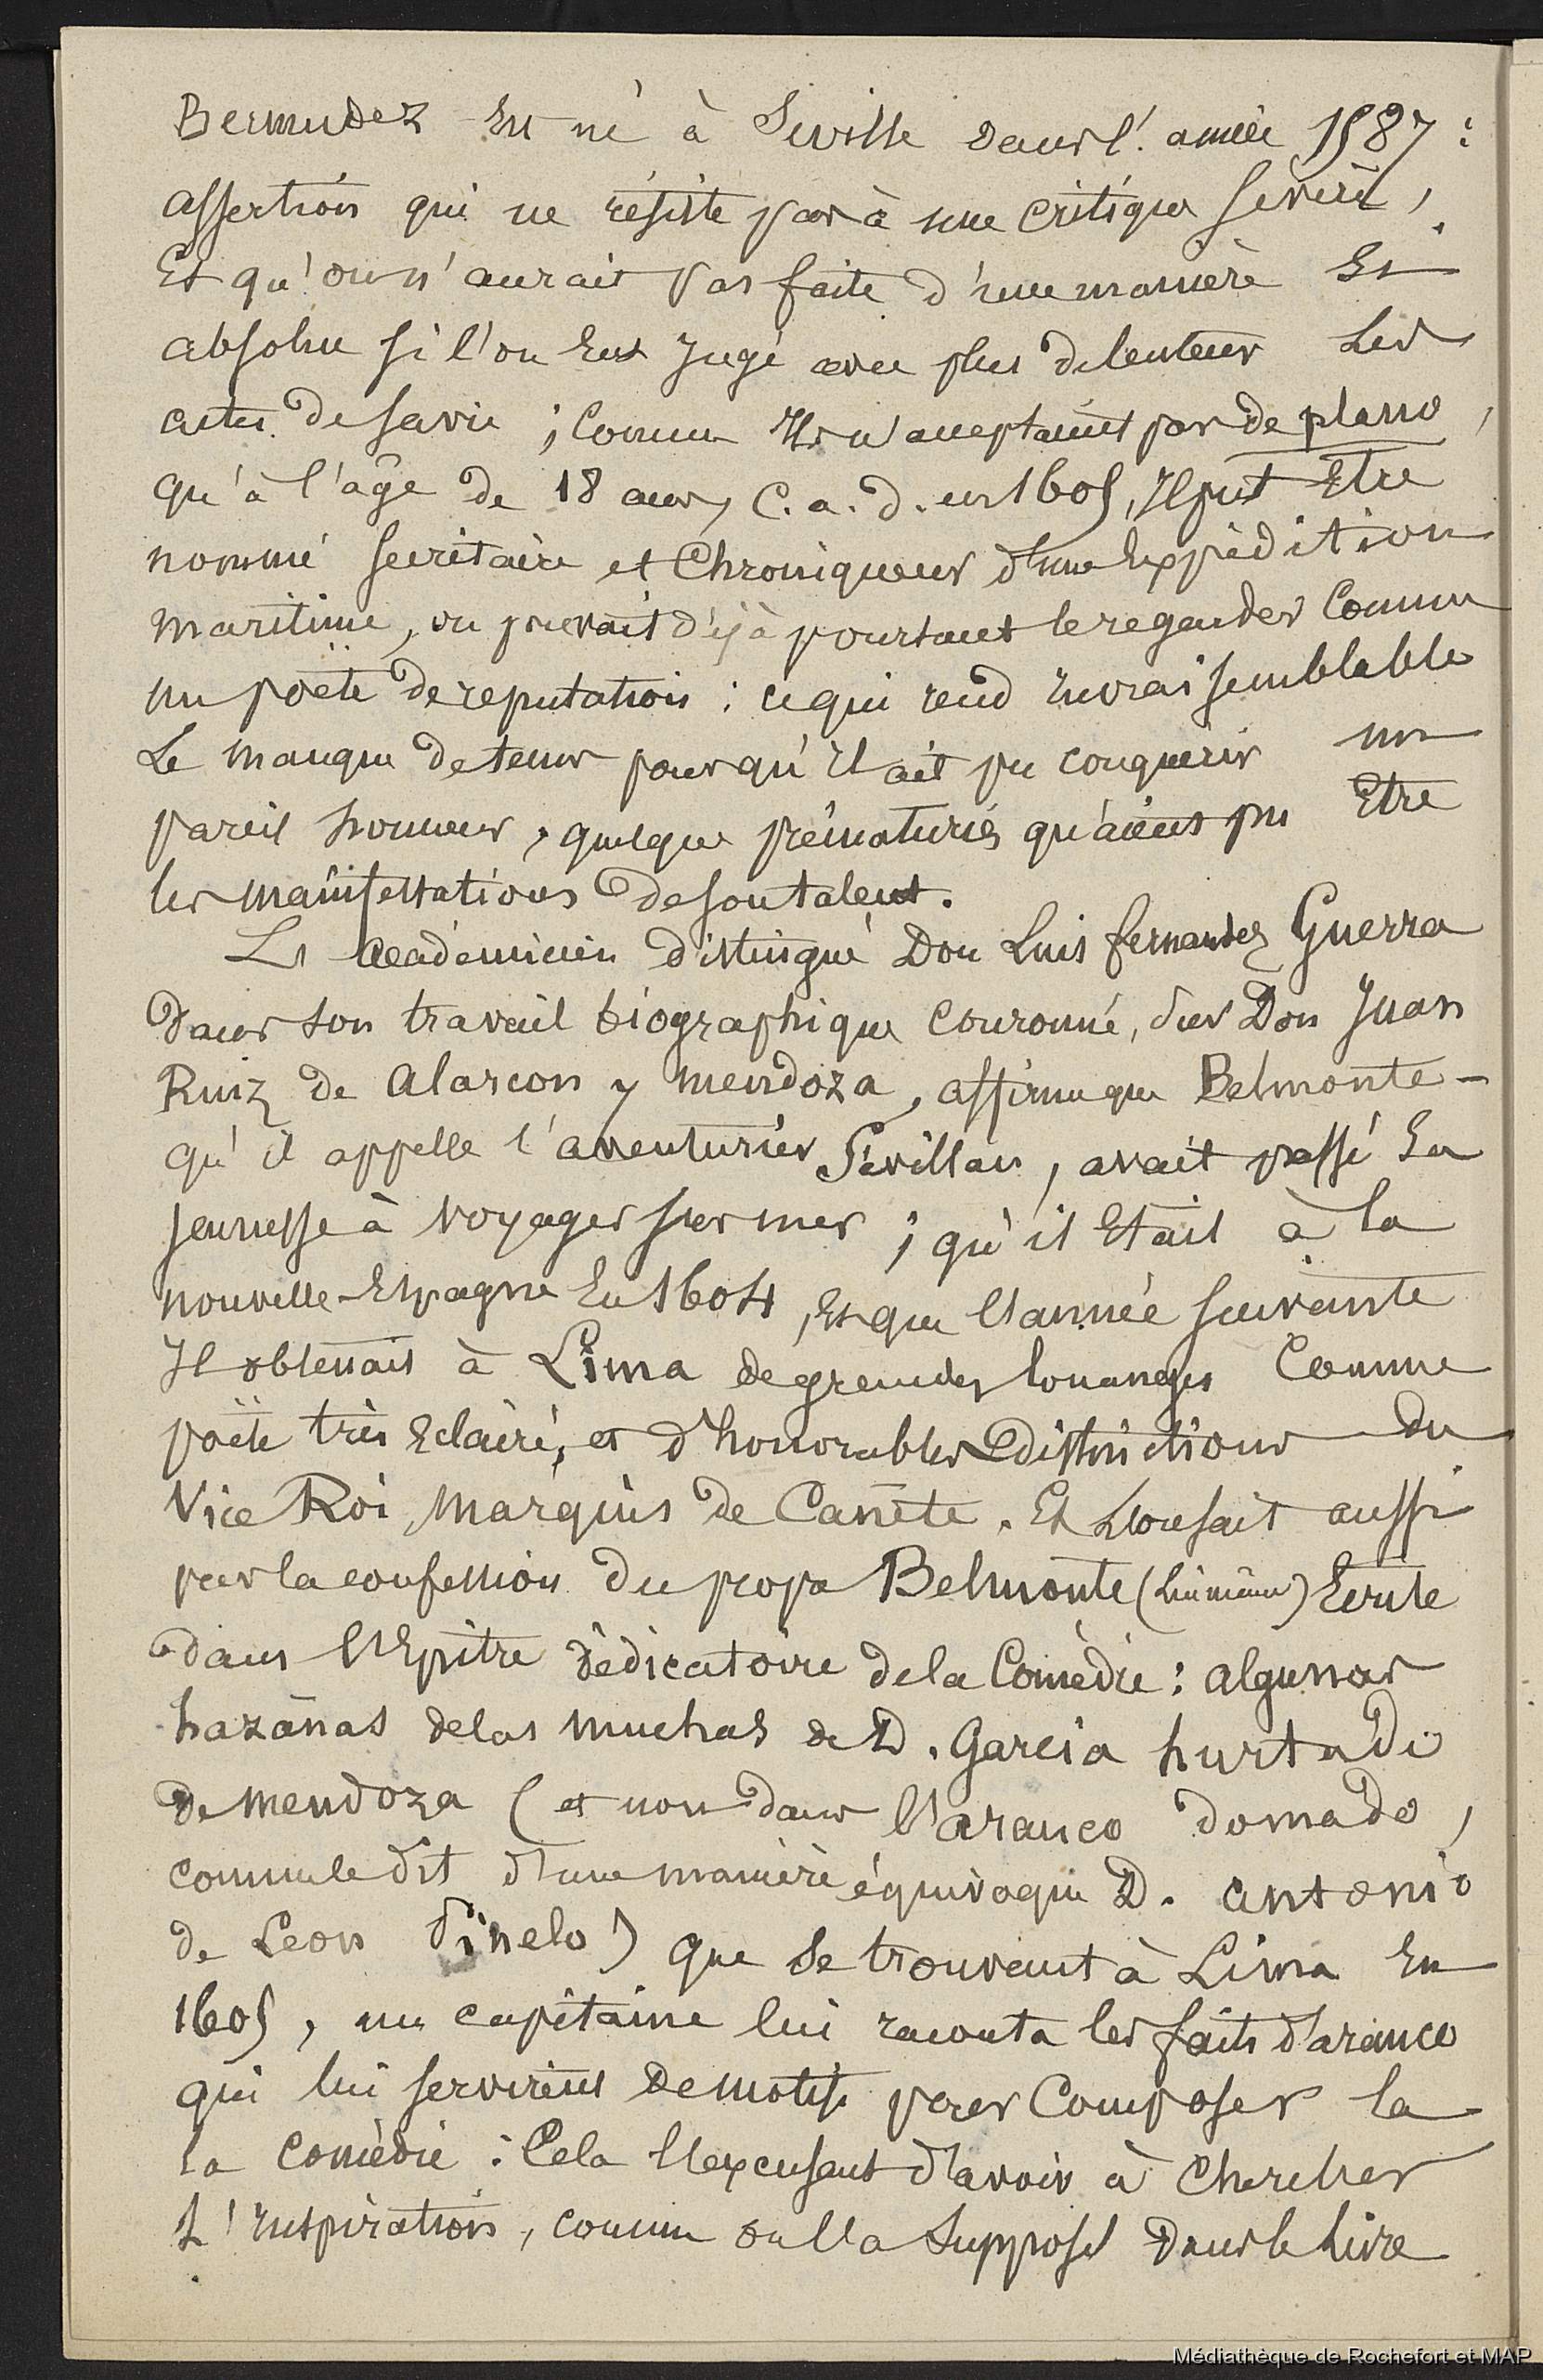 Bermudez est né à Seville dans l'année 1587 :
assertion qui ne résiste pas à une critique sévère,
Et qu'on n'aurait pas faite d'une manière Et
absolue si l'on eut Jugé avec plus de lenteur Les
actes de sa vie ; Comme Ils n'acceptaient pas de plano,
qu'à l'âge de 18 ans, C. a. d. en 1605, Il put Etre
nommé secrétaire et Chroniqueur d'une Expédition
maritime, on pouvait déjà pourtant le regarder Comme
un poëte de reputation : ce qui rend invraisemblable
Le manque de tems pour qu'il ait pu conquérir un
pareil honneur, quelque prématurés qu'aient pu Etre
les manifestations de son talent.
Le académicien distingué Don Luis fernandez Guerra
dans son travail biographique couronné, sur Don Juan
Ruiz de alarcon y mendoza, affirme que Belmonte-
qu'il appelle l'aventurier Sévillan, avait passé sa
jeunesse à voyager sur mer ; qu'il Etait à la
nouvelle-Espagne En 1604, Et que l'année suivante
Il obtenait à Lima de grandes louanges Comme
poëte très Eclairé, et d'honorables distinctions du
Vice Roi, Marquis de Cañete. Et L'on sait aussi
par la confession du propre Belmonte (lui même) Ecrite
dans l'Epitre dédicatoire de la Comédie : algunas
hazañas de las muchas de D. Garcia hurtado
de mendoza (et non dans l'arauco domado,
comme le dit d'une manière équivoque D. antonio
de Leon Pinelo) que se trouvant à Lima En
1605, un capitaine lui raconta les faits d'arauco
qui lui servirent de motifs pour Composer la
la comédie : Cela l'excusant d'avoir à Chercher
L'Inspiration, comme on l'a supposé dans le livre
Médiathèque de Rochefort et MAP